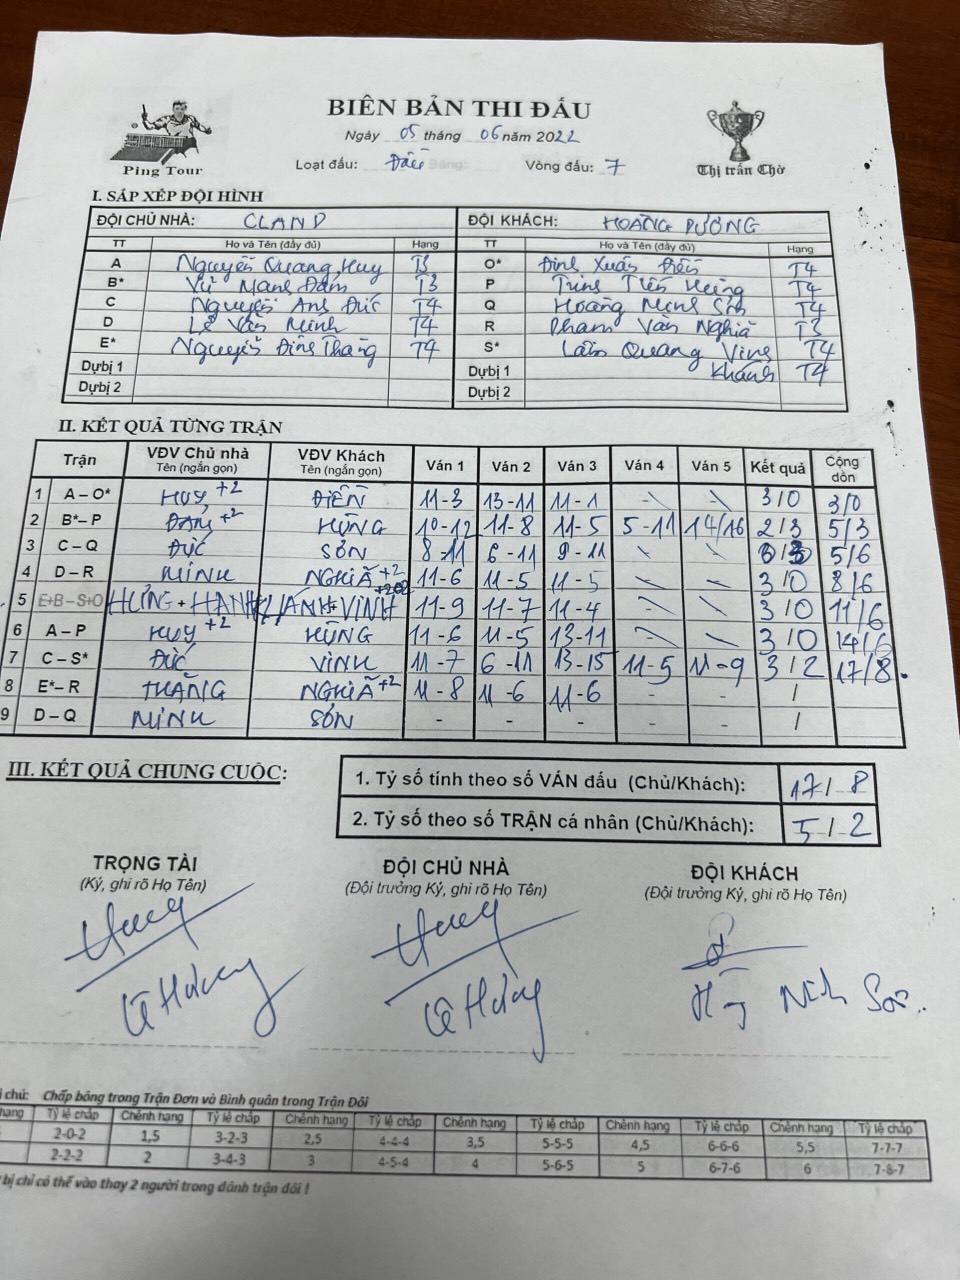 BIÊN BẢN THI ĐẤU
Ngày 05 tháng 06 năm 2022
Ping Tour
Loạt đấu: Đấu Bảng: Vòng đấu: 7
Thị trấn Chờ
I. SẮP XẾP ĐỘI HÌNH
ĐỘI CHỦ NHÀ: CLAND ĐỘI KHÁCH: HOÀNG DƯƠNG
TT Họ và Tên (đầy đủ) Hạng TT Họ và Tên (đầy đủ) Hạng
A Nguyễn Quang Huy T3 O* Đinh Xuân Điền T4
B* Vũ Mạnh Đảm T3 P Tiến Hùng T4
C Nguyễn Anh Đức T4 Q Hoàng Minh Sơn T4
D Lê Văn Minh T4 R Phạm Văn Nghĩa T3
E* Nguyễn Đình Thăng T4 S* Lâm Quang Vinh T4
Dự bị 1 Dự bị 1 Khánh T4
Dự bị 2 Dự bị 2
II. KẾT QUẢ TỪNG TRẬN
Trận VĐV Chủ nhà Tên (ngắn gọn) VĐV Khách Tên (ngắn gọn) Ván 1 Ván 2 Ván 3 Ván 4 Ván 5 Kết quả Cộng dồn
1 A – O* HUY +2 ĐIỀN 11-3 13-11 11-1 - - 3/0 3/0
2 B* – P ĐẢM +2 HÙNG 10-12 11-8 11-5 5-11 14/16 2/3 5/3
3 C – Q ĐỨC SƠN 8-11 6-11 9-11 - - 0/3 5/6
4 D – R MINH NGHĨA +2 11-6 11-5 11-5 - - 3/0 8/6
5 E+B – S+O HƯNG + HẠNH KHÁNH + VINH 11-9 11-7 11-4 - - 3/0 11/6
6 A – P HUY +2 HÙNG 11-6 11-5 13-11 - - 3/0 14/6
7 C – S* ĐỨC VINH 11-7 6-11 13-15 11-5 11-9 3/2 17/8
8 E* – R THĂNG NGHĨA +2 11-8 11-6 11-6 - - /
9 D – Q MINH SƠN - - - - - /
III. KẾT QUẢ CHUNG CUỘC:
1. Tỷ số tính theo số VÁN đấu (Chủ/Khách): 17/8
2. Tỷ số theo số TRẬN cá nhân (Chủ/Khách): 5/2
TRỌNG TÀI ĐỘI CHỦ NHÀ ĐỘI KHÁCH
(Ký, ghi rõ Họ Tên) (Đội trưởng Ký, ghi rõ Họ Tên) (Đội trưởng Ký, ghi rõ Họ Tên)
chú: Chấp bóng trong Trận Đơn và Bình quân trong Trận Đôi
hạng Tỷ lệ chấp Chênh hạng Tỷ lệ chấp Chênh hạng Tỷ lệ chấp Chênh hạng Tỷ lệ chấp Chênh hạng Tỷ lệ chấp Chênh hạng Tỷ lệ chấp
2-0-2 1,5 3-2-3 2,5 4-4-4 3,5 5-5-5 4,5 6-6-6 5,5 7-7-7
2-2-2 2 3-4-3 3 4-5-4 4 5-6-5 5 6-7-6 6 7-8-7
bị chỉ có thể vào thay 2 người trong đánh trận đôi !